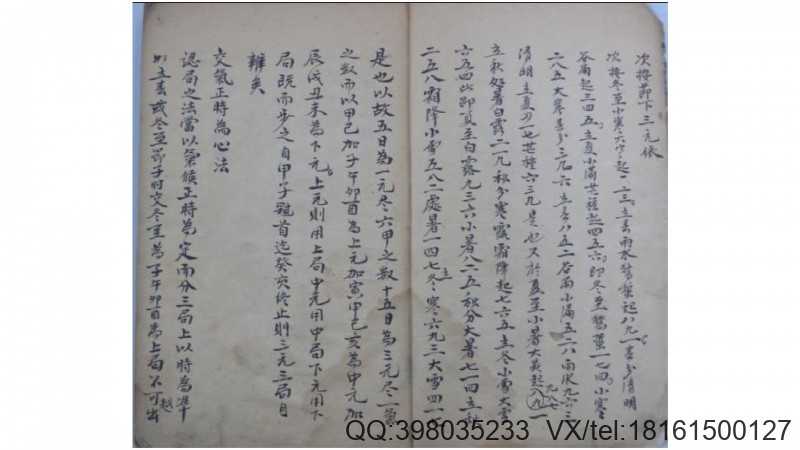 次接節下三元依
次接冬至小寒大寒起一二三立春雨水驚蟄起八九一春分清明
谷雨起三四五立夏小滿芒種起四五六即冬至驚蟄一七四小寒
二八五大寒春分三九六立春八五二谷雨小滿五二八雨水九六三
清明立夏四一七芒種六三九是也又於夏至小暑大暑起九八七
立秋處暑白露二一九秋分寒露霜降起七六五立冬小雪大雪
六五四此即夏至白露九三六小暑八二五秋分大暑七一四立秋
二五八霜降小雪五八二處暑一四七立冬寒六九三大雪四一
是也以故五日為一元尽六甲之数十五日為三元尽一节
之数而以甲己加子午卯酉為上元加寅申巳亥為中元加
辰戌丑未為下元上元則用上局中元用中局下元用下
局既而步之自甲子起首迄癸亥終止則三元三局自
辨矣
交氣正時為心法
認局之法當以氣候正時為定而分三局上以時為準
如立春或冬至節子时交冬至為子午卯酉為上局不可越出
QQ:398035233 VX/tel:18161500127